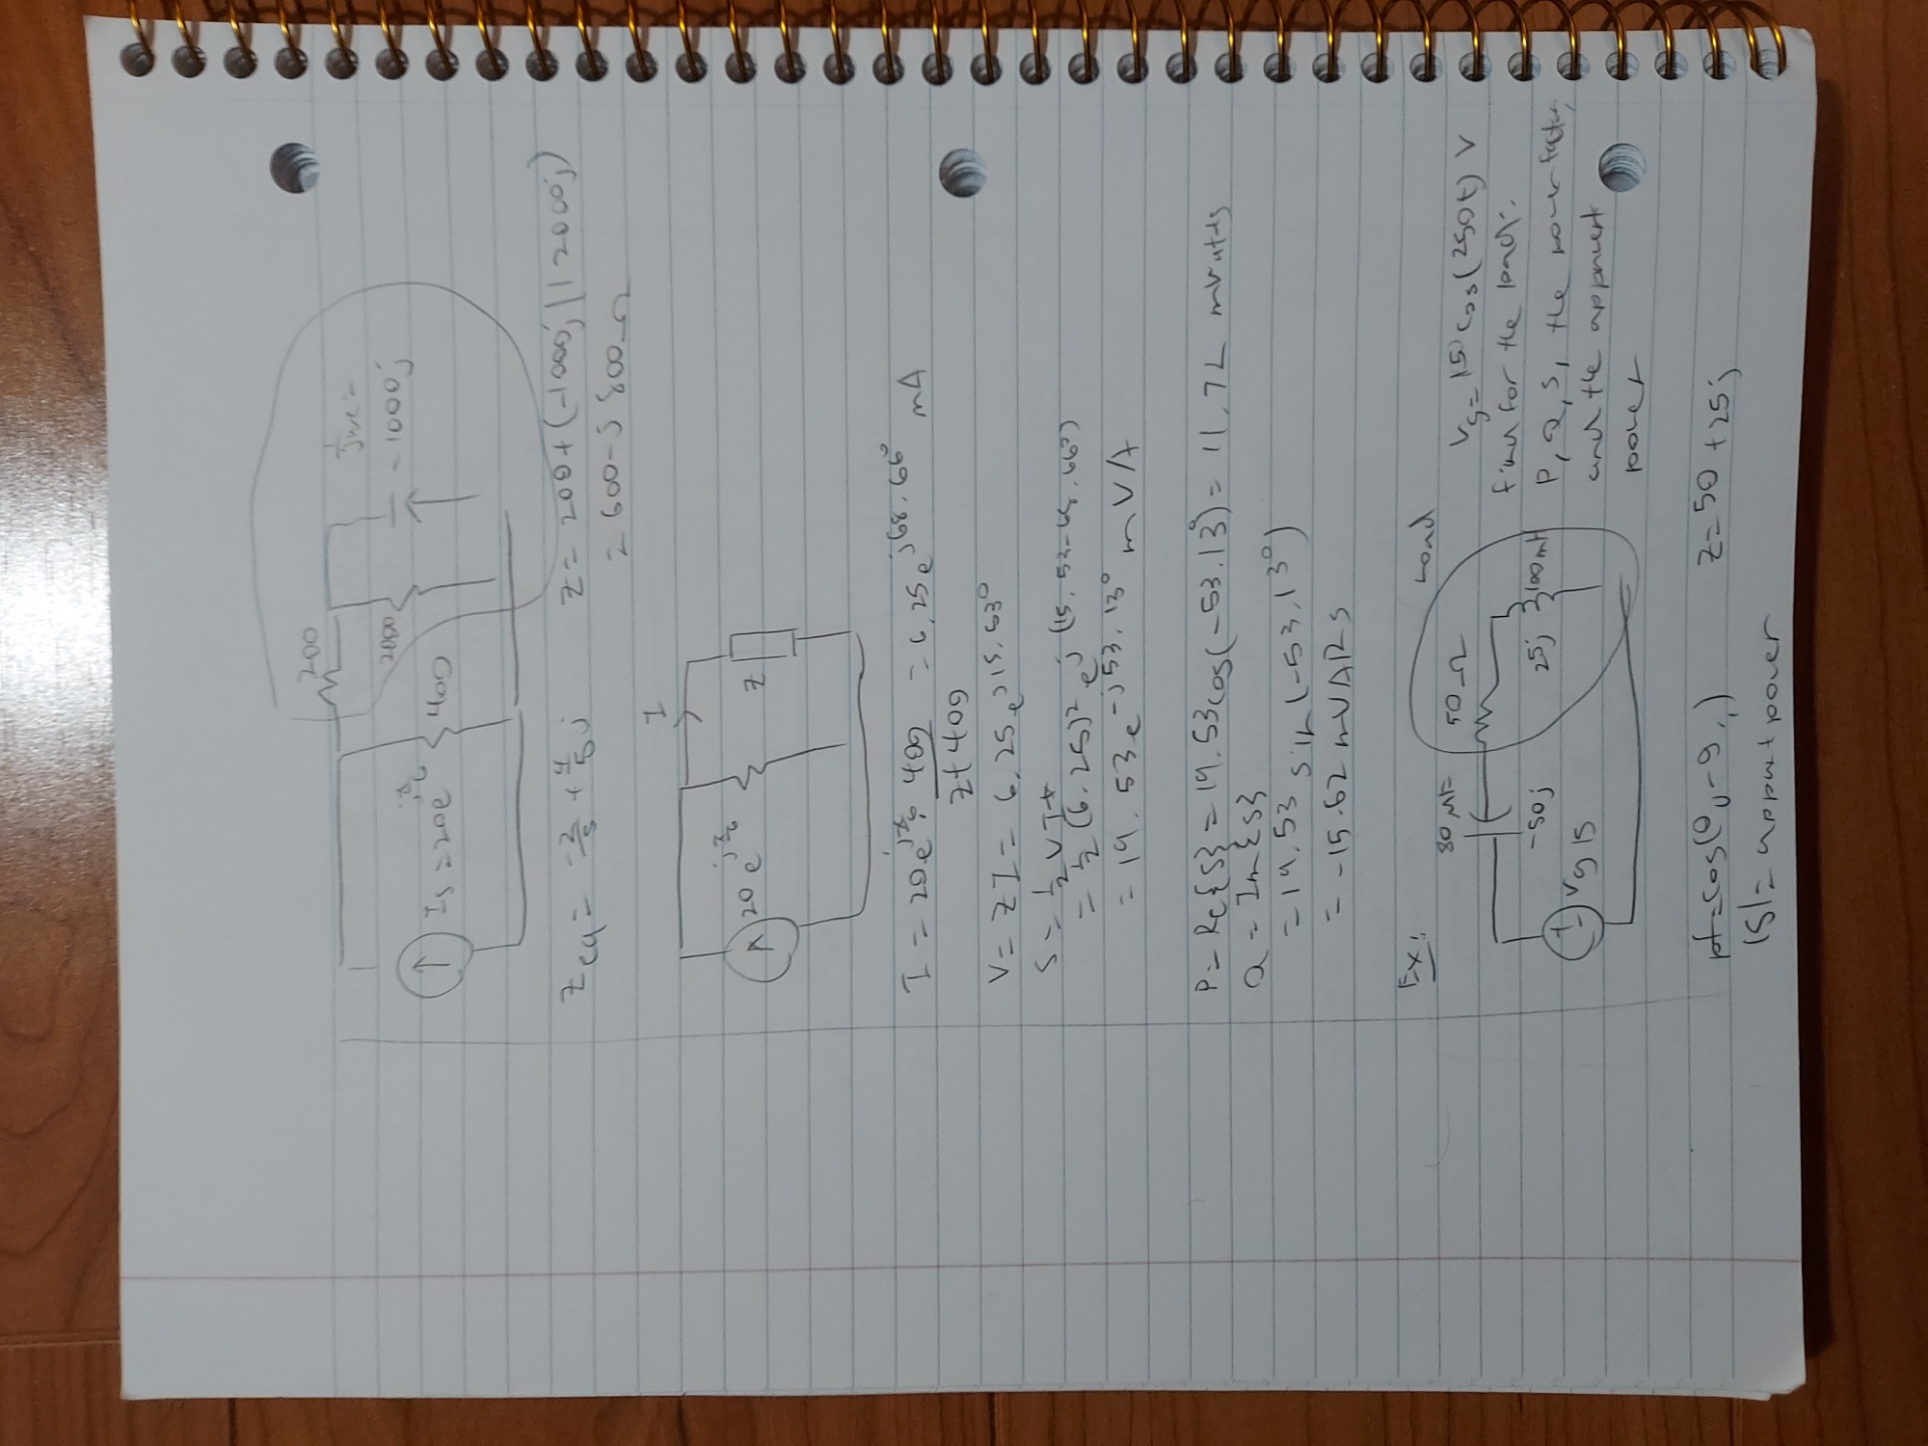 200
1/jwc =
2000
- 1000j
Is = 20e^jπ/6
400
Zeq = -2/5 + 4/5 j
Z = 200 + (-1000j || 2000j)
= 600 - j 800 Ω
I
20 e^jπ/6
Z
I = 20e^jπ/6 · 400/(Z+400) = 6.25e^j68.66° mA
V = ZI = 6.25e^j15.53°
S = 1/2 VI*
= 1/2 (6.25)² e^j(15.53-68.66°)
= 19.53e^-j53.13° mVA
P = Re{S} = 19.53cos(-53.13°) = 11.72 mwatts
Q = Im{S}
= 19.53 sin(-53.13°)
= -15.62 mVARs
Ex:
Load
80 MF
50 Ω
-50j
25j
100mH
Vg 15
Vg = 15 cos(250t) V
find for the load:
P, Q, S, the power factor,
and the apparent
power
pf = cos(θv - θi)
Z = 50 + 25j
|S| = apparent power